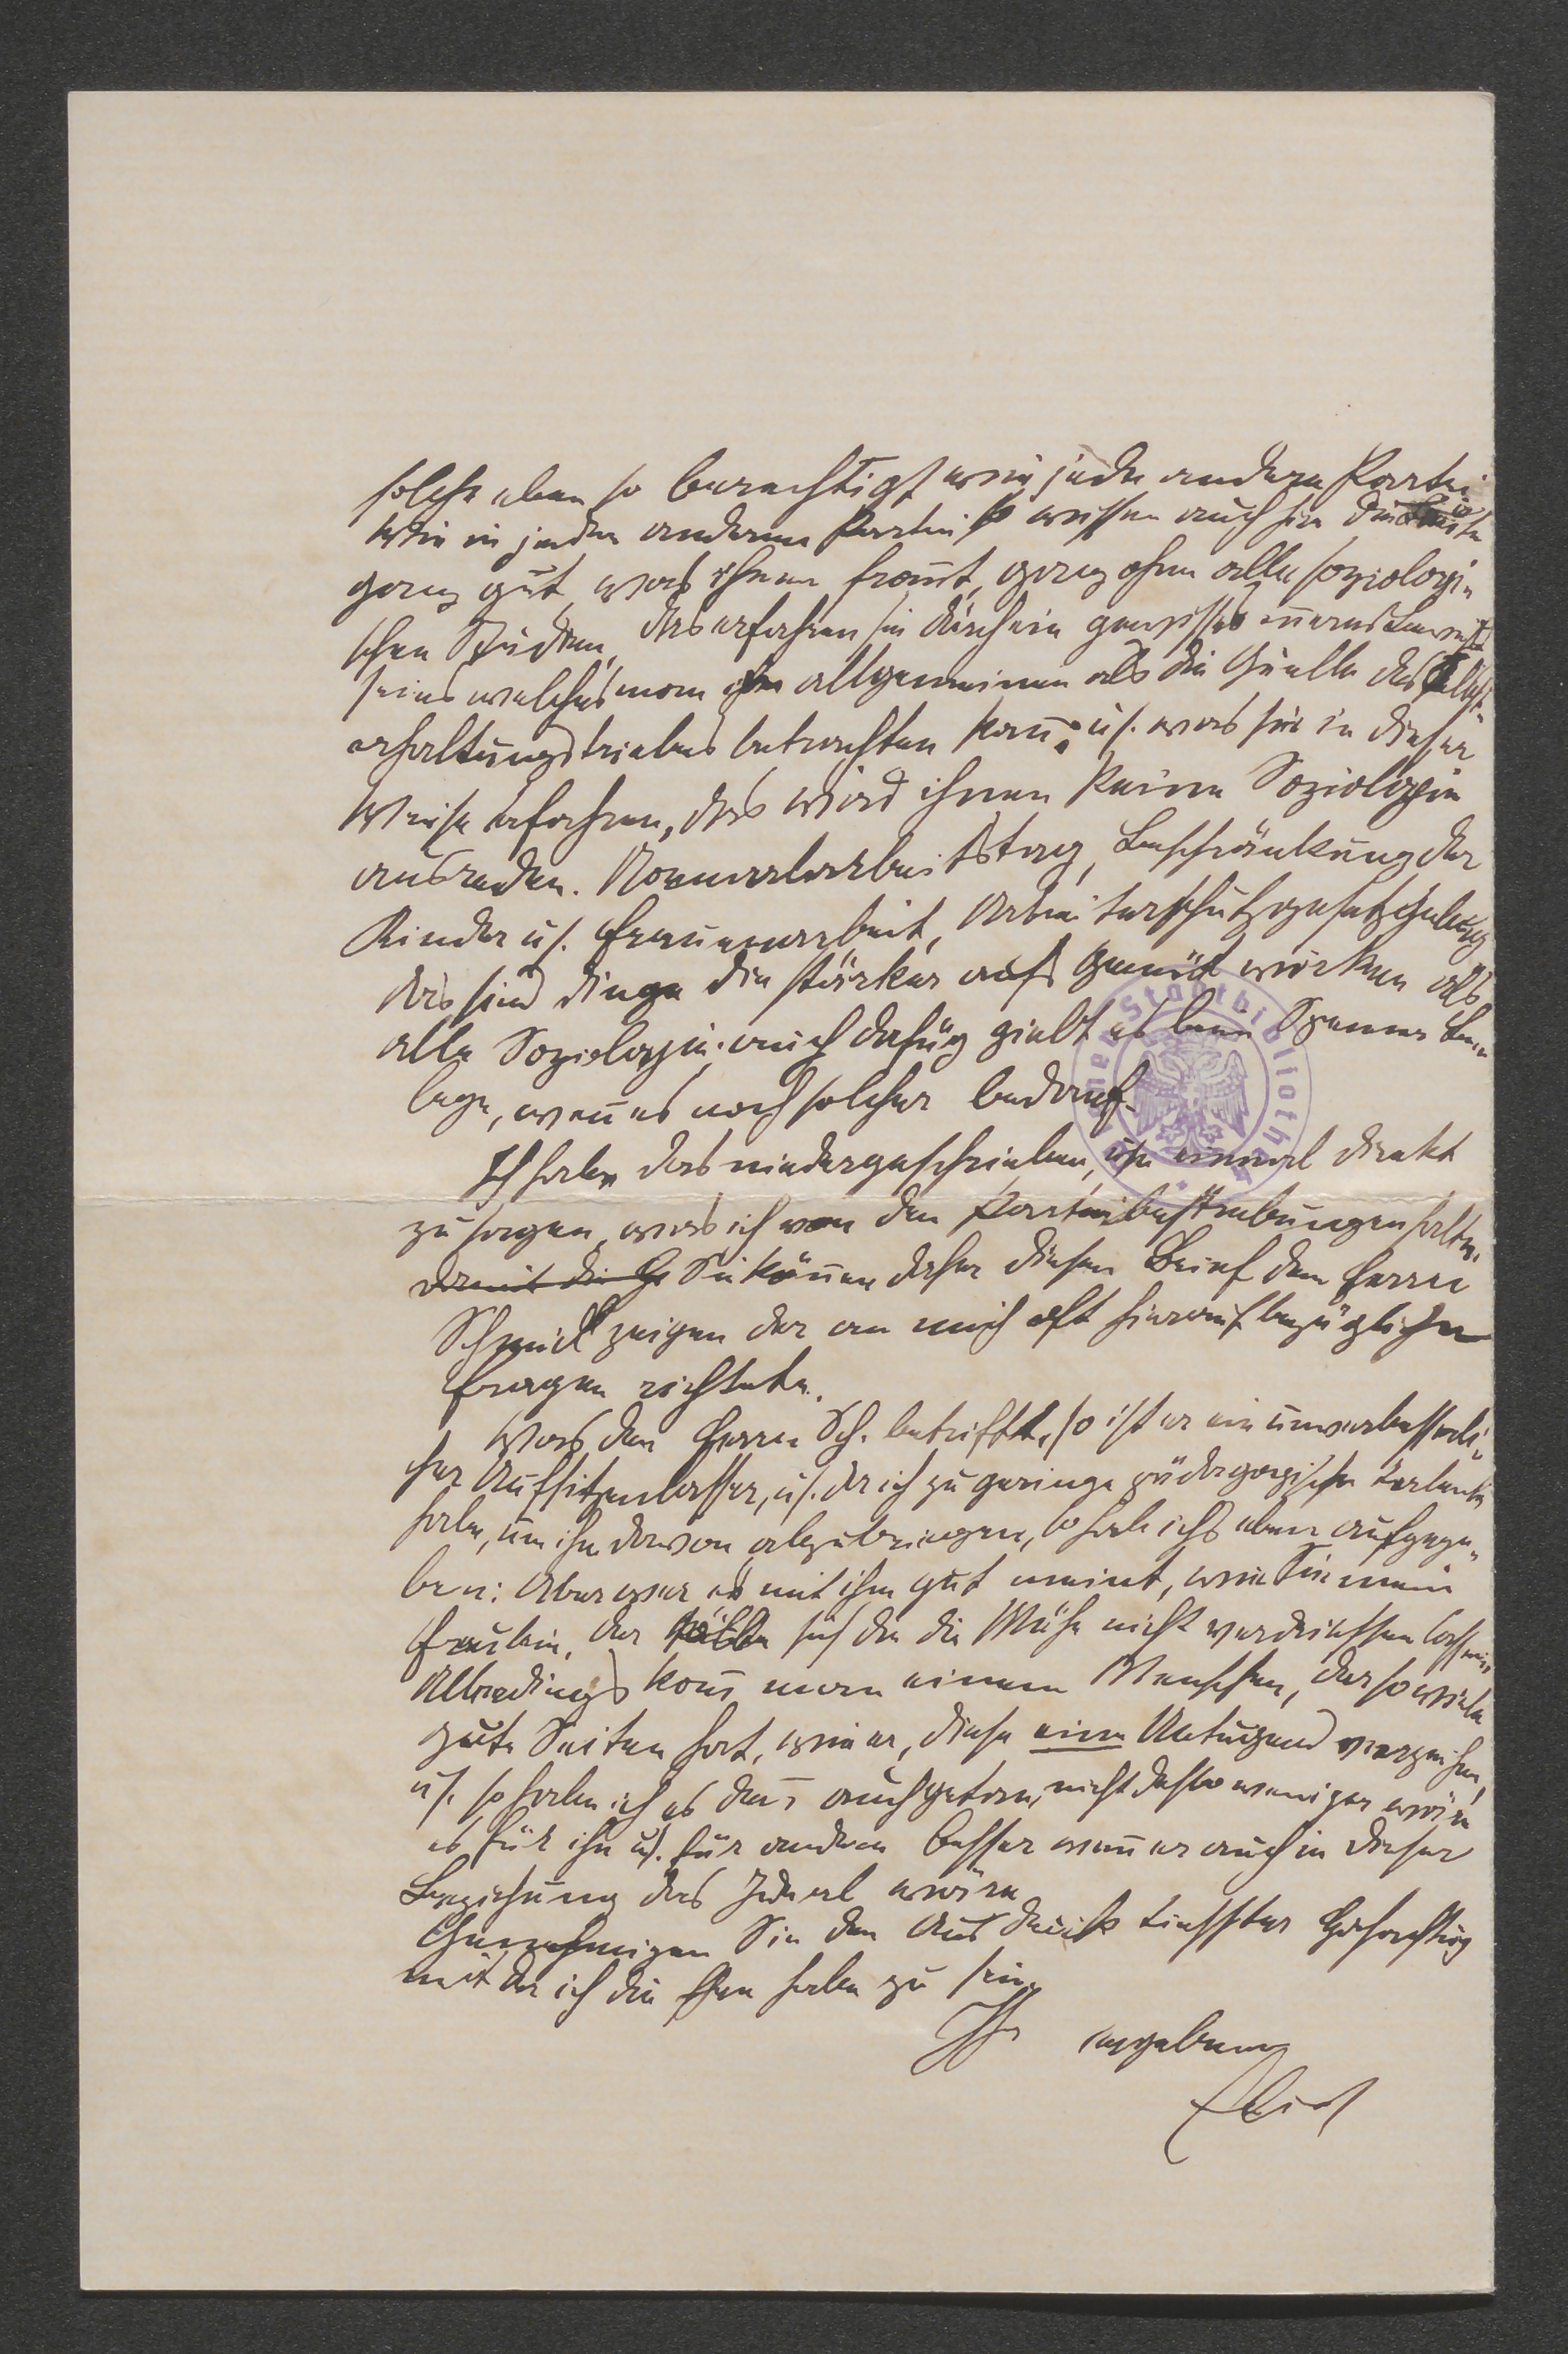 solche eben so berechtigt wie jede andere Partei
Wie in jeder anderen Partei so wissen auch hier die Leute
ganz gut, was ihnen fromt, ganz ohne alle soziologi-
schen Studien, das erfahren sie durch ein gewisses
seins welches man im allgemeinen als die Quelle des Selbst-
erhaltungstriebes betrachten kan̄; u/. was sie in dieser
Weise erfahren, das wird ihnen keine Soziologie
ausreden. Normalarbeitstag, Beschränkung der
Kinder u/. Frauenarbeit, Arbeiterschutzgesetzgebung
das sind Dinge die stärker aufs Gemüt wirken als
alle Soziologie; auch dafür giebt es Be-
lege, wen̄ es noch solcher bedarf.
Ich habe das niedergeschrieben, um einmal direkt
zu sagen, was ich von den Parteibestrebungen halte.
damit die Sie kön̄en daher diesen Brief dem Herrn
Schmidt zeigen der an mich oft hierauf bezügliche
Fragen richtete.
Was den Herrn Sch. betrifft, so ist er ein unverbesserli-
cher Aufsitzenlasser, u/. da ich zu geringe pädagogische Talente
habe, um ihn davon abzubringen, so hab ichs eben aufgege-
ben: Aber wer es mit ihm gut meint, wie Sie mein
Fräulein, der sollte sich die Mühe nicht verdriessen lassen.
Allerdings kan̄ man einem Menschen, der so viele
gute Seiten hat, wie er, diese eine Untugend verzeihen,
u/. so habe ich es den̄ auch getan, nicht desto weniger wäre
es für ihn u/. für andere besser wen̄ er auch in dieser
Beziehung das Ideal wäre
Genehmigen Sie den Ausdruck tiefster Hochachtung
mit der ich die Ehre habe zu sein
Ihr ergebener